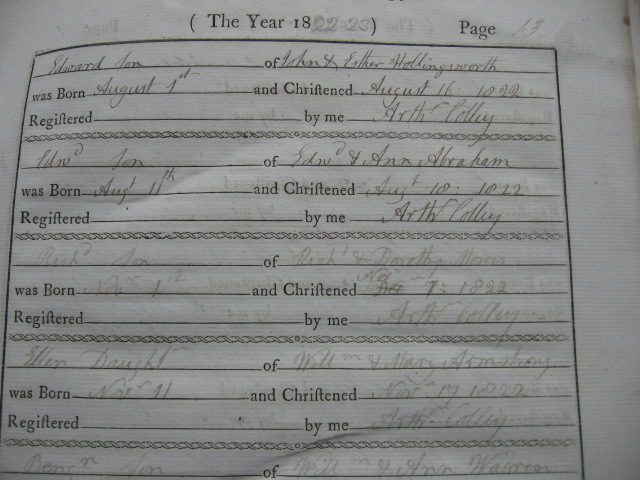 ( The Year 1822-23 ) Page 13
Edward Son of John & Esther Hollingsworth
was Born August 1st and Chriſtened August 16: 1822
Regiſtered by me Arthr Colley
Edwd Son of Edwd & Ann Abraham
was Born Augt 11th and Chriſtened Augt 18: 1822
Regiſtered by me Arthr Colley
Richd Son of Richd & Dorothy Morris
Nov
was Born Novr 1st and Chriſtened Dec 7: 1822
Regiſtered by me Arthr Colley
Ellen Daughtr of Willm & Mary Armstrong
was Born Novr 11 and Chriſtened Novr 17 1822
Regiſtered by me Arthr Colley
Benjn Son of Willm & Ann Warren